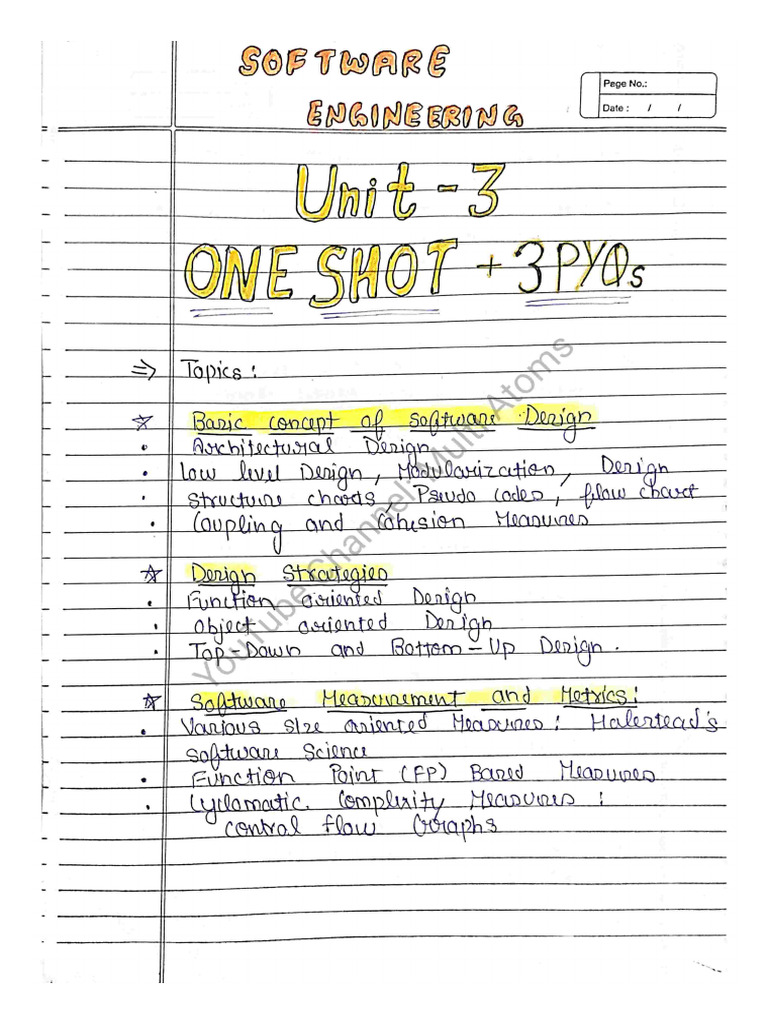 SOFTWARE
ENGINEERING
Page No.:
Date : / /
Unit - 3
ONE SHOT + 3 PYQs
⇒ Topics :
☆ Basic concept of software Design
• Architectural Design
• Low level Design, Modularization, Design
• structure charts, Pseudo codes, flow chart
• Coupling and Cohesion Measures
☆ Design Strategies
• Function oriented Design
• Object oriented Design
• Top-Down and Bottom-Up Design.
☆ Software Measurement and Metrics:
• Various size oriented Measures: Halestead's
software Science
• Function Point (FP) Based Measures
• Cyclomatic Complexity Measures :
control flow Graphs
YouTube Channel: Multi Atoms